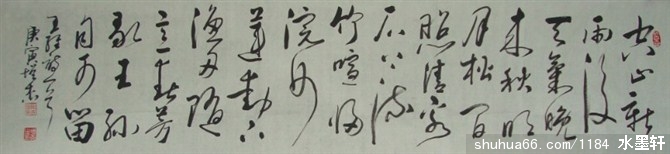 空山新
雨後
天氣晚
来秋明
月松间
照清泉
石上流
竹喧归
浣女
莲動下
渔舟随
意春芳
歇王孫
自可留
王维诗一首
庚寅
shuhua66.com/1184 水墨轩